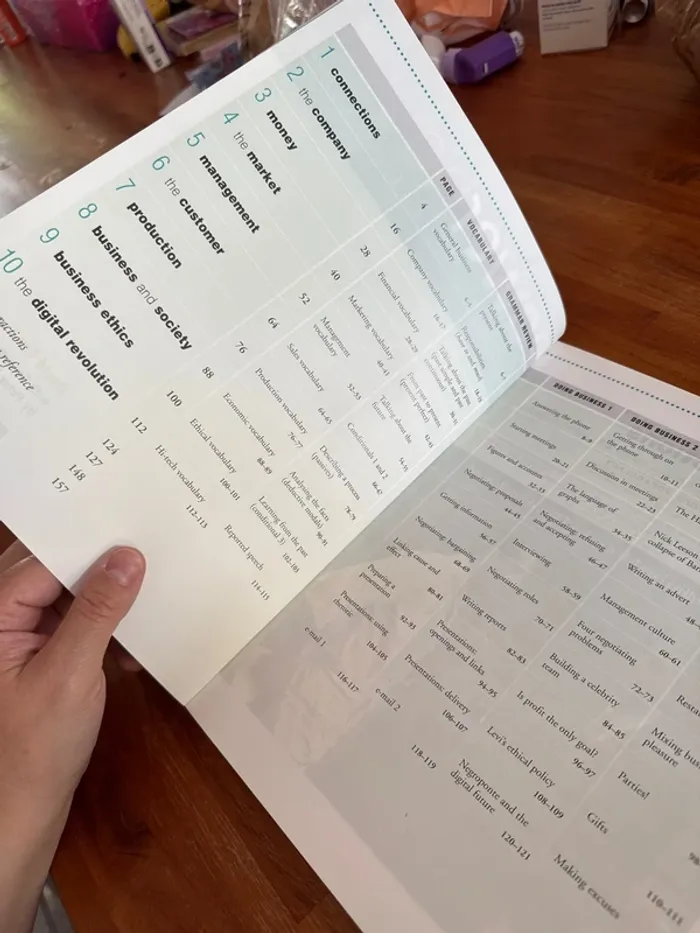 1 connections
2 the company
3 money
4 the market
5 management
6 the customer
7 production
8 business and society
9 business ethics
10 the digital revolution
reference
PAGE
4
16
28
40
52
64
76
88
100
112
124
127
148
157
VOCABULARY
General business
vocabulary
Company vocabulary
16–17
Financial vocabulary
28–29
Marketing vocabulary
40–41
Management
vocabulary
52–53
Sales vocabulary
64–65
Production vocabulary
76–77
Economic vocabulary
88–89
Ethical vocabulary
100–101
Hi-tech vocabulary
112–113
GRAMMAR REVIEW
Talking about the
present
Responsibilities
Talking about the past
(past simple and past
continuous)
From past to present
(present perfect)
Talking about the
future
54–55
Conditionals 1 and 2
66–67
Describing a process
(passive)
78–79
Analysing the facts
(deductive modals)
90–91
Learning from the past
(conditional 3)
102–103
Reported speech
114–115
DOING BUSINESS 1
Answering the phone
8–9
Starting meetings
20–21
Figures and accounts
32–33
Negotiating: proposals
44–45
Getting information
56–57
Negotiating: bargaining
68–69
Linking cause and
effect
80–81
Preparing a
presentation
92–93
Presentations: using
rhetoric
104–105
e-mail 1
116–117
DOING BUSINESS 2
Getting through on
the phone
10–11
Discussion in meetings
22–23
The language of
graphs
34–35
Negotiating: refining
and accepting
46–47
Interviewing
58–59
Negotiating roles
70–71
Writing reports
82–83
Presentations:
openings and links
94–95
Presentations: delivery
106–107
e-mail 2
118–119
Nick Leeson
collapse of
Writing an advert
Management culture
60–61
Four negotiating
problems
72–73
Building a celebrity
team
84–85
Is profit the only goal?
96–97
Levi's ethical policy
108–109
Negroponte and the
digital future
120–121
Mixing
pleasure
Parties!
Gifts
Making excuses
110–111